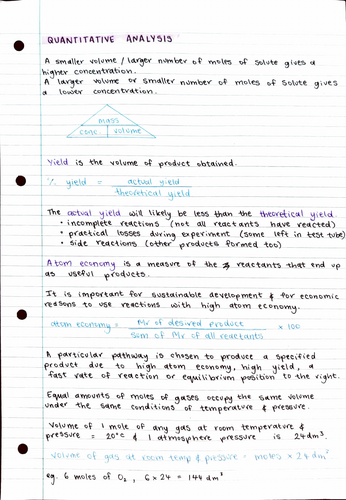 QUANTITATIVE ANALYSIS
A smaller volume / larger number of moles of solute gives a
higher concentration.
A larger volume or smaller number of moles of solute gives
a lower concentration.
mass
conc. volume
Yield is the volume of product obtained.
% yield = actual yield
theoretical yield
The actual yield will likely be less than the theoretical yield.
• incomplete reactions (not all reactants have reacted)
• practical losses during experiment (some left in test tube)
• side reactions (other products formed too)
Atom economy is a measure of the reactants that end up
as useful products.
It is important for sustainable development & for economic
reasons to use reactions with high atom economy.
atom economy = Mr of desired produce × 100
sum of Mr of all reactants
A particular pathway is chosen to produce a specified
product due to high atom economy, high yield, a
fast rate of reaction or equilibrium position to the right.
Equal amounts of moles of gases occupy the same volume
under the same conditions of temperature & pressure.
Volume of 1 mole of any gas at room temperature &
pressure = 20°C & 1 atmosphere pressure is 24dm³.
Volume of gas at room temp & pressure = moles × 24dm³
eg. 6 moles of O₂, 6×24 = 144 dm³